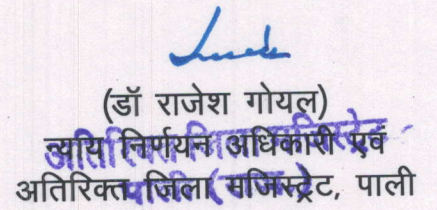 (डॉ राजेश गोयल)
न्याय निर्णयन अधिकारी एवं
अतिरिक्त जिला मजिस्ट्रेट, पाली